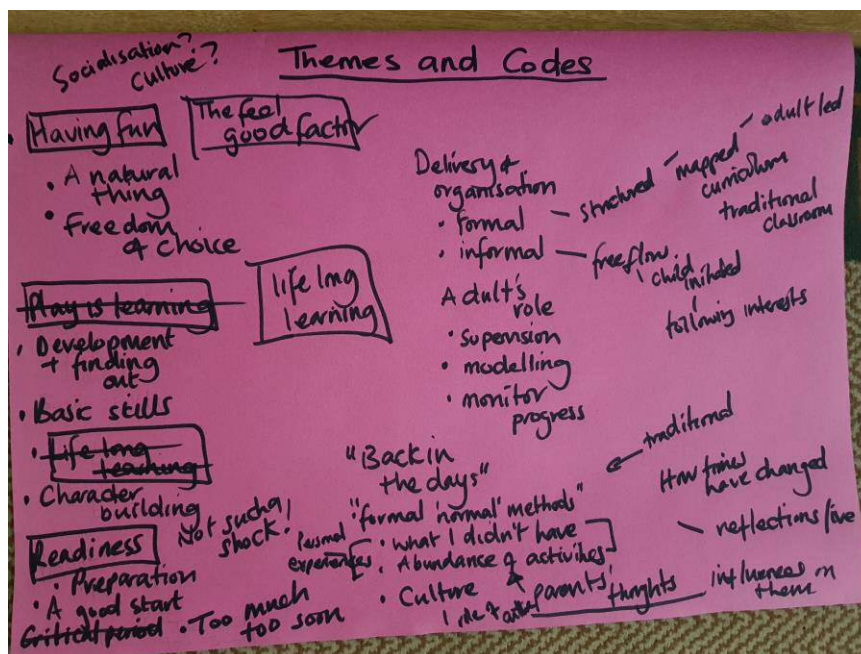 Socialisation?
Culture?
Themes and Codes
Having fun
The feel
good factor
• A natural
thing
• Freedom
of choice
Play is learning
life long
learning
• Development
+ finding
out
• Basic skills
• Life long
learning
• Character
building
Readiness
Not such a
shock!
• Preparation
• A good start
Critical period
• Too much
too soon
Delivery +
organisation
• formal – structured – mapped – adult led
curriculum
traditional
classroom
• informal – freeflow
child initiated
following interests
Adult's
role
• supervision
• modelling
• monitor
progress
"Back in
the days"
traditional
"formal 'normal' methods"
How times
have changed
Personal
experiences
• what I didn't have
• Abundance of activities
– reflections/ive
• Culture
parents'
thoughts
influences on
them